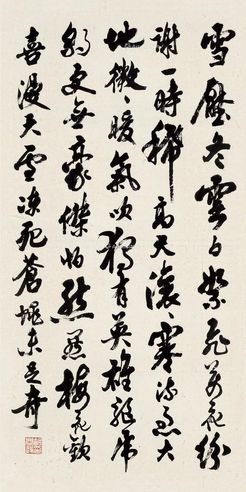 雪壓冬雲白絮飛萬花紛
謝一時稀高天滾〻寒流急大
地微〻暖氣吹獨有英雄驅虎
豹更無豪傑怕熊羆梅花歡
喜漫天雪凍死蒼蠅未足奇